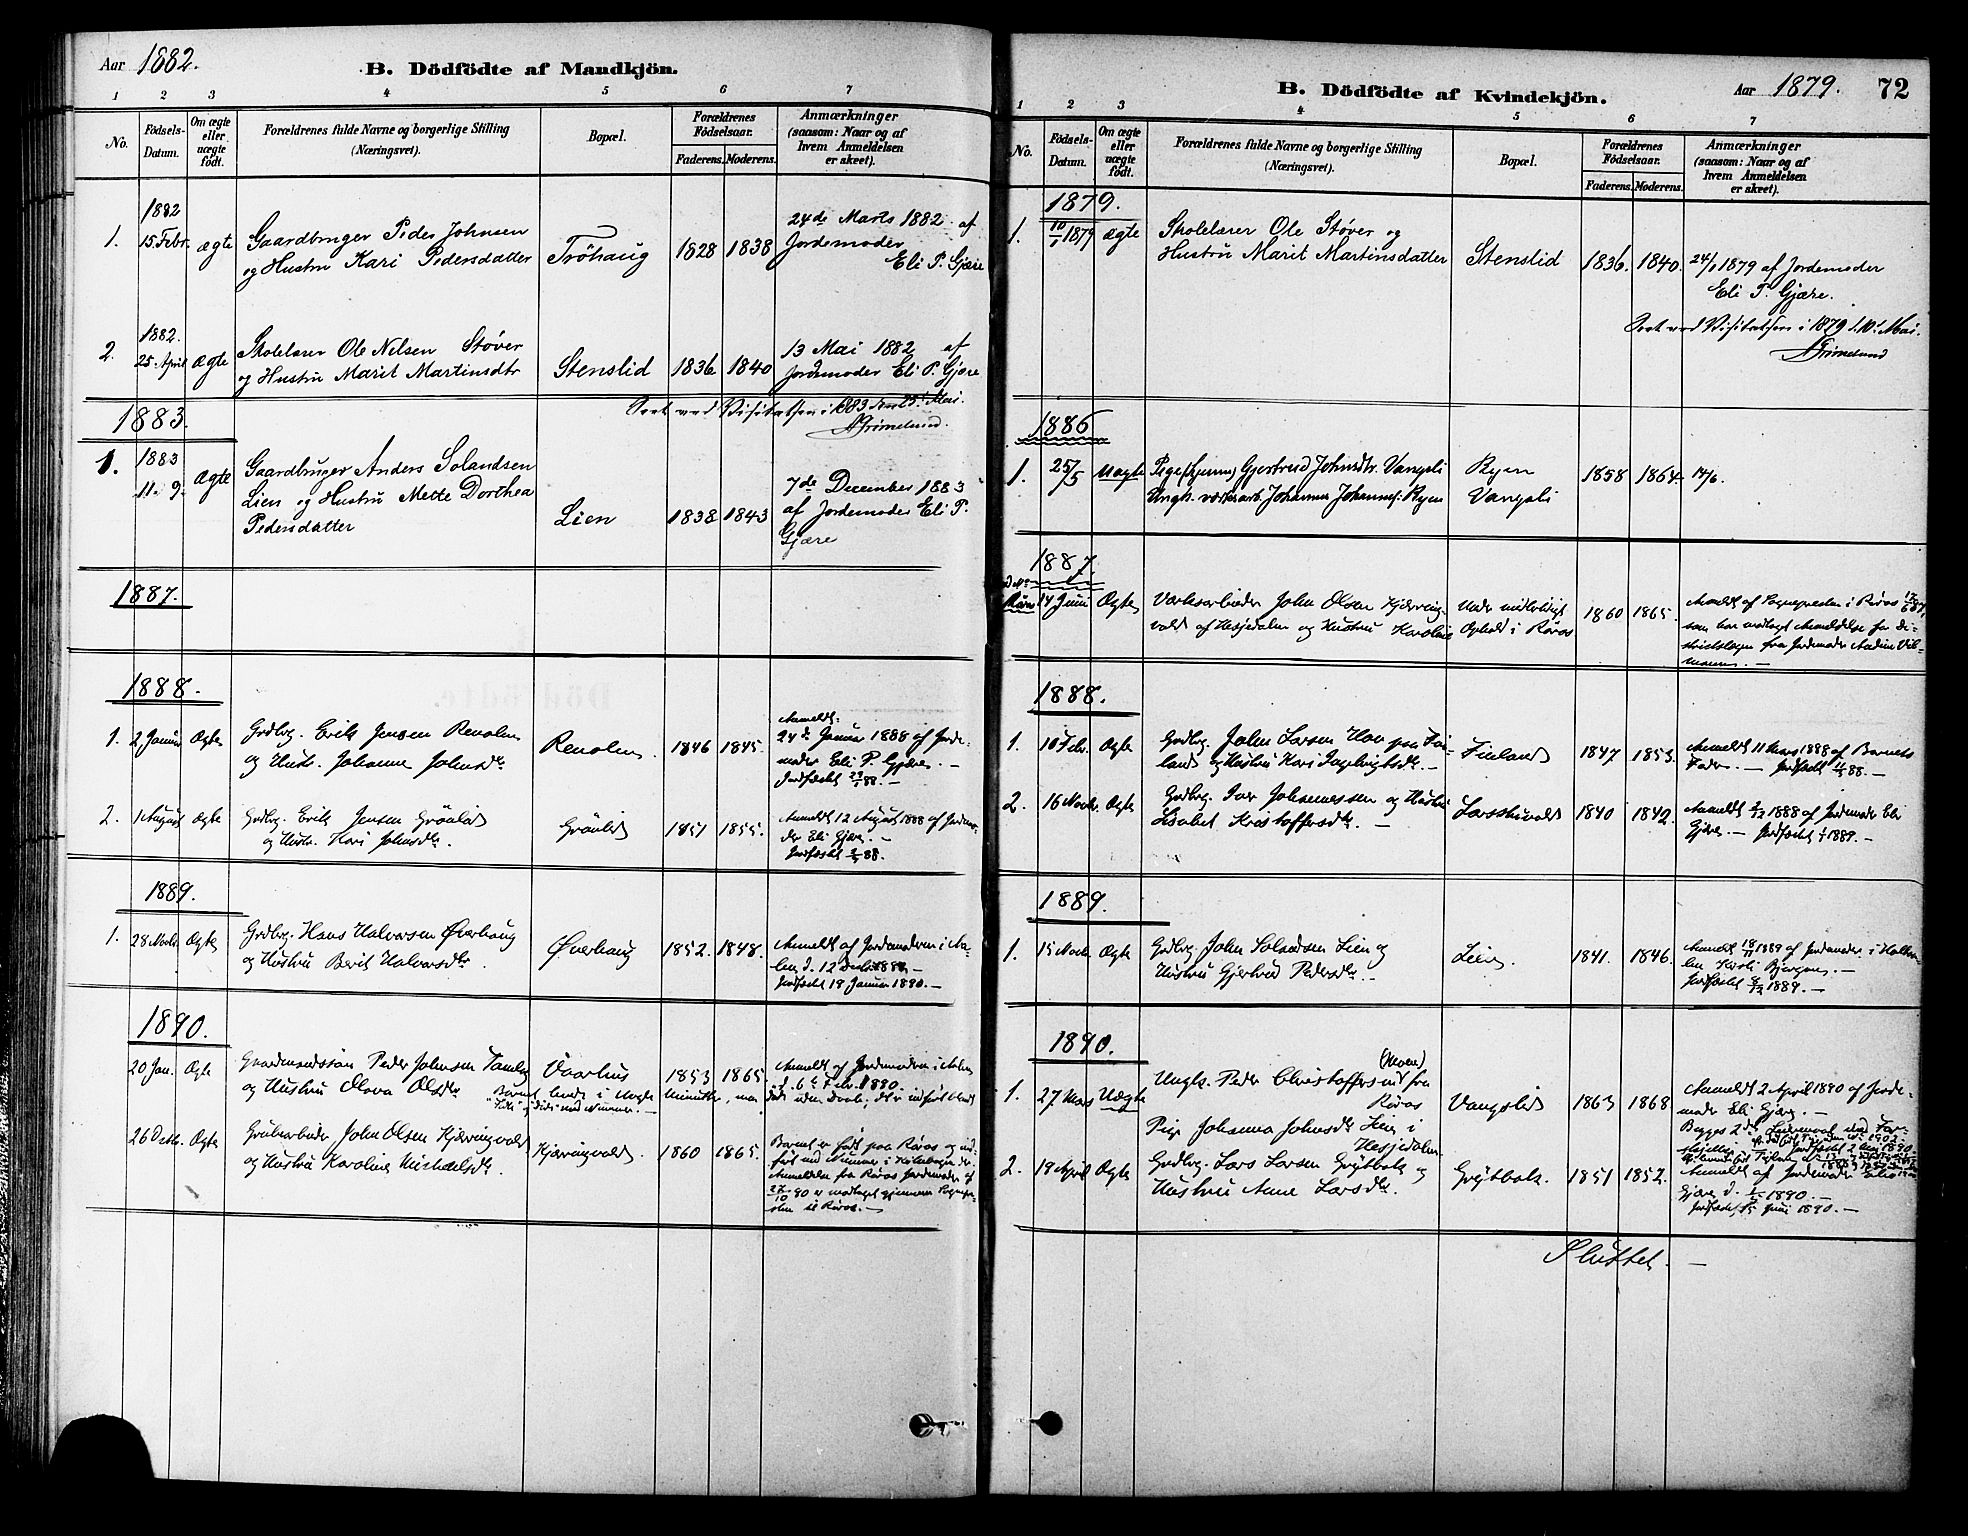 Aar 1882.
B. Dödfödte af Mandkjön.
1 2 3 4 5 6 7
No.
Födsels-Datum.
Om ægte eller uægte födt.
Forældrenes fulde Navne og borgerlige Stilling
(Næringsvei).
Bopæl.
Forældrenes Födselsaar.
Faderens. Moderens.
Anmærkninger
(saasom: Naar og af
hvem Anmeldelsen
er skeet).
1. 1882 15 Febr. ægte
Gaardbruger Peder Johnsen
og Hustru Kari Pedersdatter
Tröhaug 1828 1838
24de Marts 1882 af
Jordemoder
Eli P. Gjære
2. 1882. 25 April ægte
Skolelærer Ole Nilsen Støver
og Hustru Marit Martinsdtr
Stenslid 1836 1840
13 Mai 1882 af
Jordemoder Eli P. Gjære
Seet ved Visitatsen i 1883 den 25 Mai.
Grimelund.
1883.
1. 1883 11. 9. ægte
Gaardbruger Anders Solandsen
Lien og Hustru Mette Dorthea
Pedersdatter
Lien 1838 1843
7de December 1883
af Jordemoder Eli P.
Gjære
1887.
1888.
1. 2 Januar Ægte
Grdbrg. Erik Jensen Renolen
og Hustr. Johanne Johnsdtr.
Renolen. 1846 1845.
Anmeldt:
24de Januar 1888 af Jorde-
moder Eli P. Gjære. —
2. 1 August Ægte
Grdbrg. Erik Jensen Grönlid
og Hustr. Kari Johnsdtr.
Grönlid 1851 1855.
Anmeldt 12 August 1888 af Jordemo-
der Eli Gjære. —
1889.
1. 28 Novbr. Ægte
Grdbrg. Hans Halvorsen Øverhaug
og Hustru Berit Halvorsdtr.
Øverhaug 1852. 1848.
Anmeldt af Jordemoderen i Aa-
len d. 12 Decbr. 1889 —
Jordfæstet 19 Januar 1890. —
1890.
20 Jan. Ægte
Gaardmandssön Peder Johnsen
og Hustru Olava Olsdtr.
Vaarhus 1853 1865.
Anmeldt af Jordemoderen i Aalen
26 Octbr. Ægte
Grubearbeider John Olsen Kjærringvold
og Hustru Karoline Mikkelsdtr.
Kjærringvold. 1860 1865.
Barnet er født paa Röros og ind-
ført med Nummer i Kirkebogen der.
Anmeldelse fra Röros Jordemoder af
27/10 90 er modtaget gjennem Sognepre-
sten til Röros. —
B. Dödfödte af Kvindekjön.
Aar 1879. 72
1 2 3 4 5 6 7
No.
Födsels-Datum.
Om ægte eller uægte födt.
Forældrenes fulde Navne og borgerlige Stilling
(Næringsvei).
Bopæl.
Forældrenes Födselsaar.
Faderens. Moderens.
Anmærkninger
(saasom: Naar og af
hvem Anmeldelsen
er skeet).
1879.
1. 10/1 1879 ægte
Skolelærer Ole Støver og
Hustru Marit Martinsdatter
Stenslid 1836. 1840.
24/1 1879 af Jordemoder
Eli P. Gjære.
Seet ved Visitatsen i 1879 d. 10. Mai.
Grimelund
1886
1. 25/5 Uægte
Pige Gjertrud Johnsdtr. Vangsli
Ungk. Johannes Johannes: Ryen
Ryen
Vangsli
1858 1864. 14/6.
1887.
Röros 14 Juni Ægte
Værksarbeider John Olsen Kjærring-
vold af Hesjedalen og Hustru Karoline
Under midlertidigt
Ophold i Röros
1860 1865.
Anmeldt af Sognepresten i Röros 17/6 87,
som har modtaget Anmeldelse fra Di-
striktslægen fra Jordemoder
1888.
1. 10 Febr. Ægte
Grdbrg. John Larsen Hov paa Fin-
land og Hustru Kari Ingebrigtsdtr. —
Finland 1847 1853.
Anmeldt 11 Mars 1888 af Barnets
Fader. — Jordfæstet 11/3 88. —
2. 16 Novbr. Ægte
Grdbrg. Iver Johannessen og Hustru
Lisabet Kristoffersdtr. —
Larshusvold 1840 1842.
Anmeldt 2/12 1888 af Jordemoder Eli
Gjære. — Jordfæstet 1/1 1889. —
1889.
1. 15 Novbr. Ægte
Grdbrg. John Solandsen Lien og
Hustru Gjertrud Pedersdtr. —
Lien 1841. 1846.
Anmeldt 18/11 1889 af Jordemoder i Holtaa-
len Bjørgen. —
Jordfæstet 8/12 1889. —
1890.
1. 27 Mars Uægte
Ungk. Peder Christoffersen fra
Röros
Pige Johanna Johnsdtr. Lien i
Hessjedalen
Vangslid 1863 1868
Anmeldt 2 April 1890 af Jorde-
moder Eli Gjære. —
2. 19 April Ægte
Grdbrg. Lars Larsen Grytbak og
Hustru Anne Larsdtr.
Grytbak. 1851 1852.
Anmeldt af Jordemoder Eli
Gjære d. 1890. —
Jordfæstet 15 Juni 1890. —
Sluttet. —